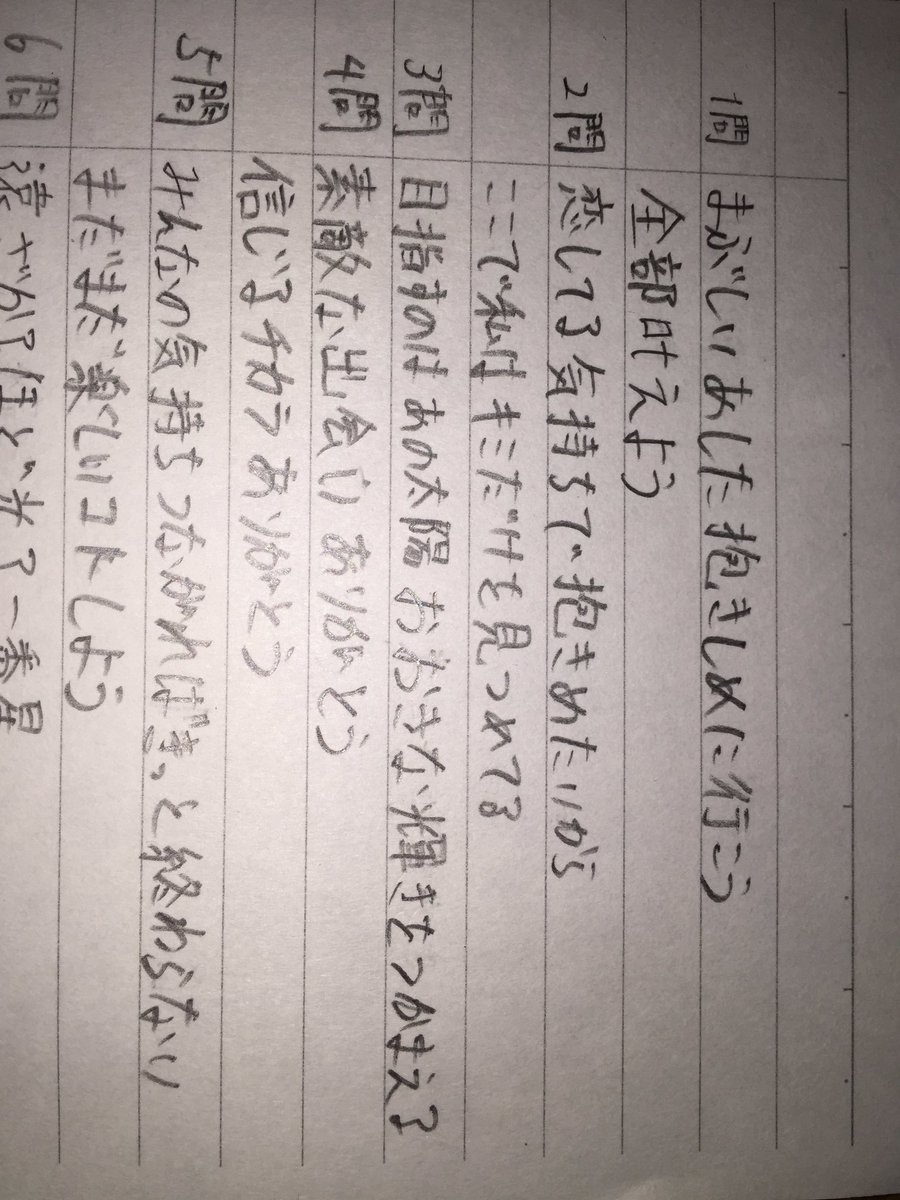 1問 まぶしいあした抱きしめに行こう
全部叶えよう
2問 恋してる気持ちで抱きめたいから
ここで私はキミだけを見つめてる
3問 目指すのはあの太陽 おおきな輝きをつかまえる
4問 素敵な出会い ありがとう
信じるチカラ ありがとう
5問 みんなの気持ちつながればきっと終わらない
まだまだ楽しいコトしよう
6問 遠ざかるほど光る一番星